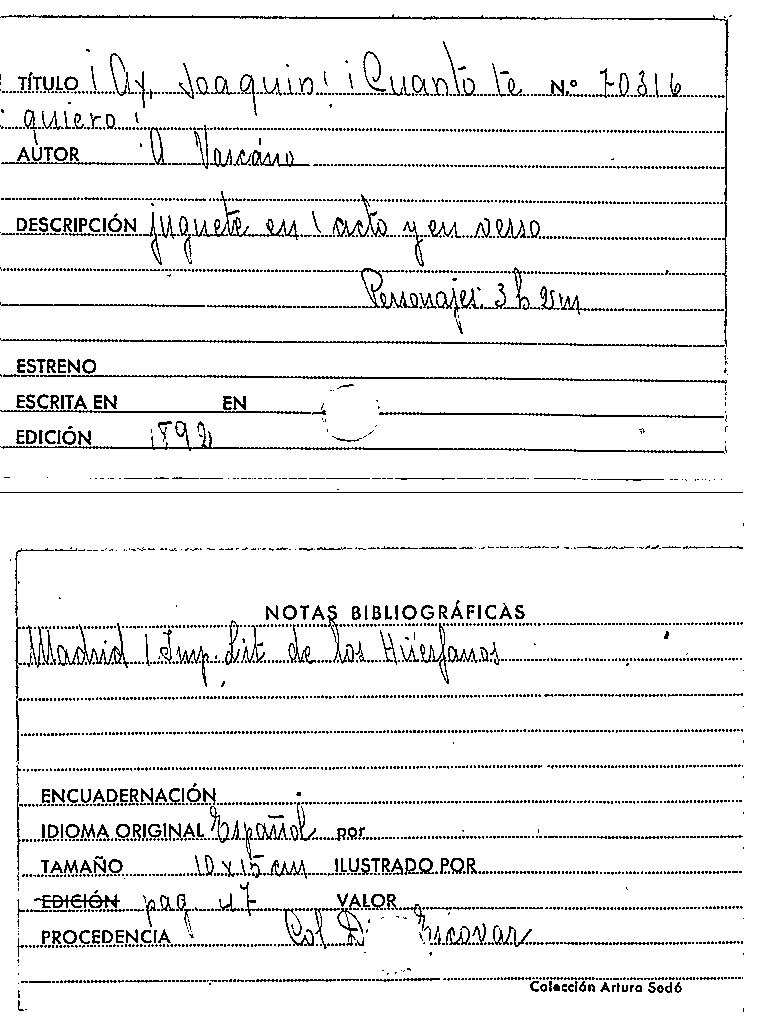 TÍTULO ¡Ay, Joaquin! ¡Cuanto te N.º 70316
quiero!
AUTOR A Vascáno
DESCRIPCIÓN juguete en 1 acto y en verso
Personajes: 3 h 2 m
ESTRENO
ESCRITA EN EN
EDICIÓN 1892
NOTAS BIBLIOGRÁFICAS
Madrid / Imp. Lit de los Huerfanos
ENCUADERNACIÓN
IDIOMA ORIGINAL Español por
TAMAÑO 10 x 15 cm ILUSTRADO POR
EDICIÓN pag 47 VALOR
PROCEDENCIA Col Escovar
Colección Arturo Sedó